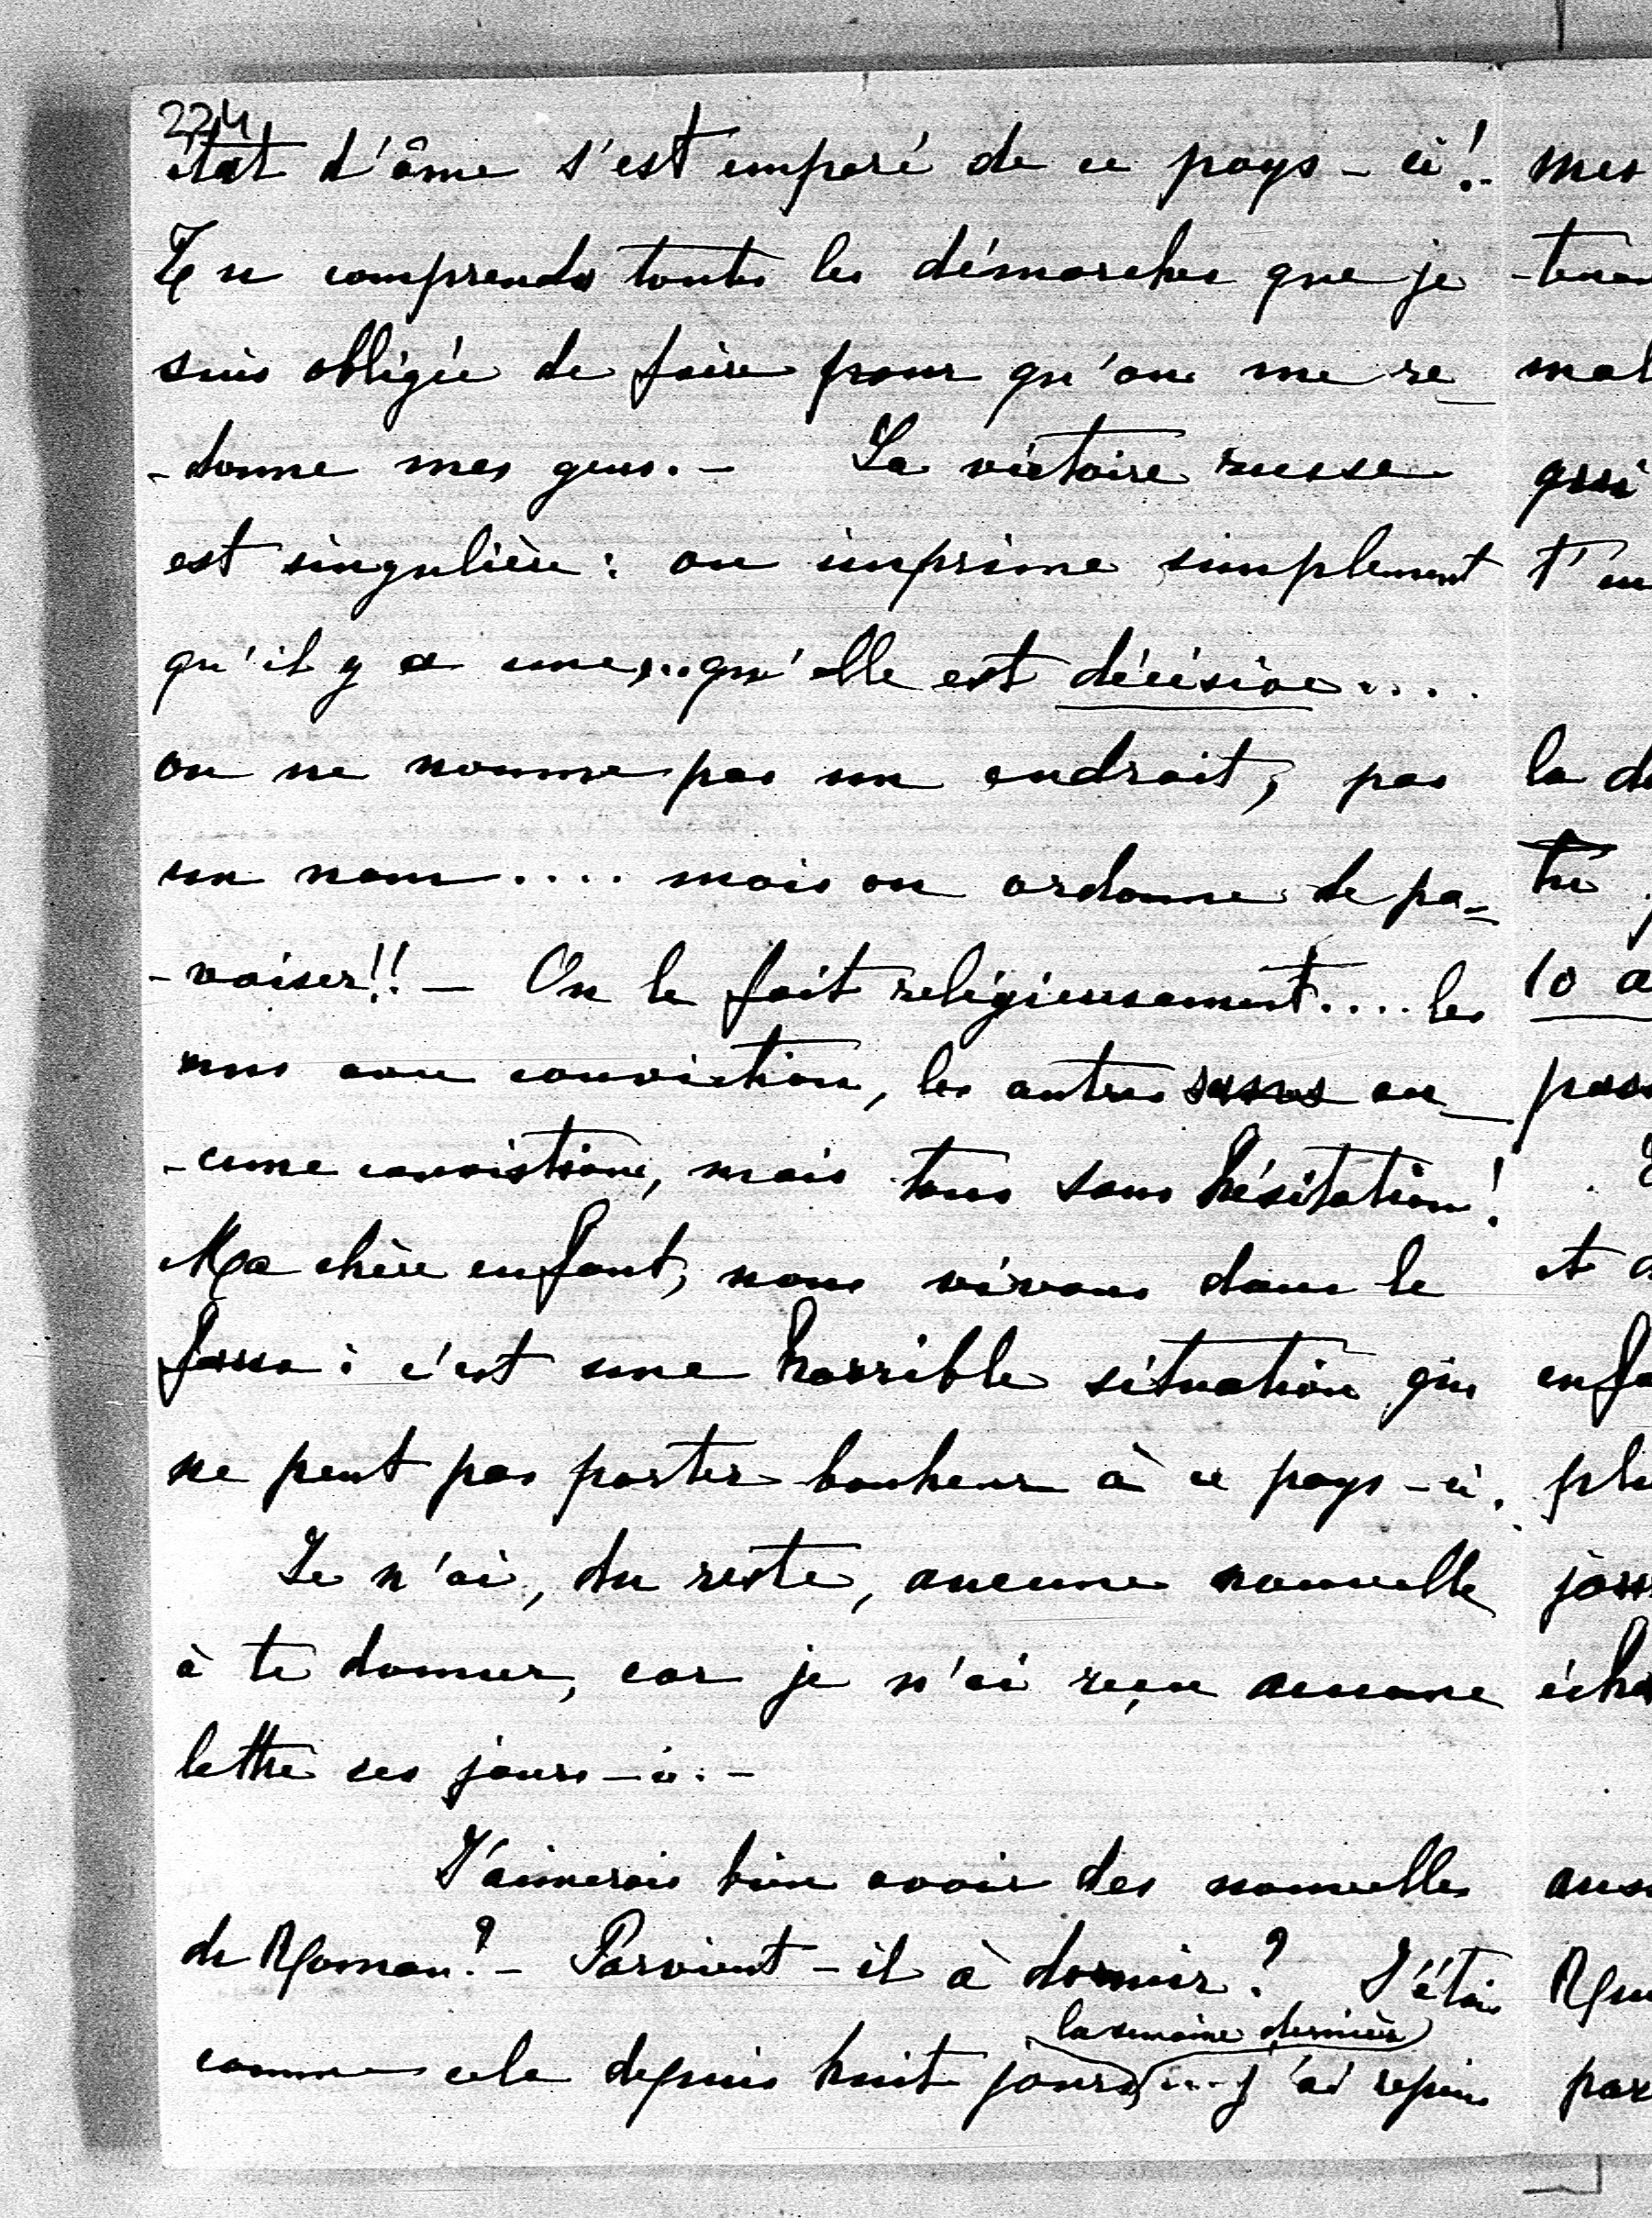 224
état d'âme s'est emparé de ce pays-ci!..
Tu comprends toutes les démarches que je
suis obligée de faire pour qu'on me re-
-donne mes gens.- La victoire russe
est singulière: on imprime simplement
qu'il y a une,..qu'elle est décisive....
on ne nomme pas un endroit, pas
un nom.... mais on ordonne de pa-
-voiser!!- On le fait religieusement.... les
uns avec conviction, les autres sans au-
-cune conviction, mais tous sans hésitation!
Ma chère enfant, nous vivons dans le
faux: c'est une horrible situation qui
ne peut pas porter bonheur à ce pays-ci.
Je n'ai, du reste, aucune nouvelle
à te donner, car je n'ai reçu aucune
lettre ces jours-ci.-
J'aimerais bien avoir des nouvelles
de Roman?- Parvient-il à dormir? J'étais
la semaine dernière
comme cela depuis huit jours,...j'ai repris
mes
mal
qui
la
tu
10
et